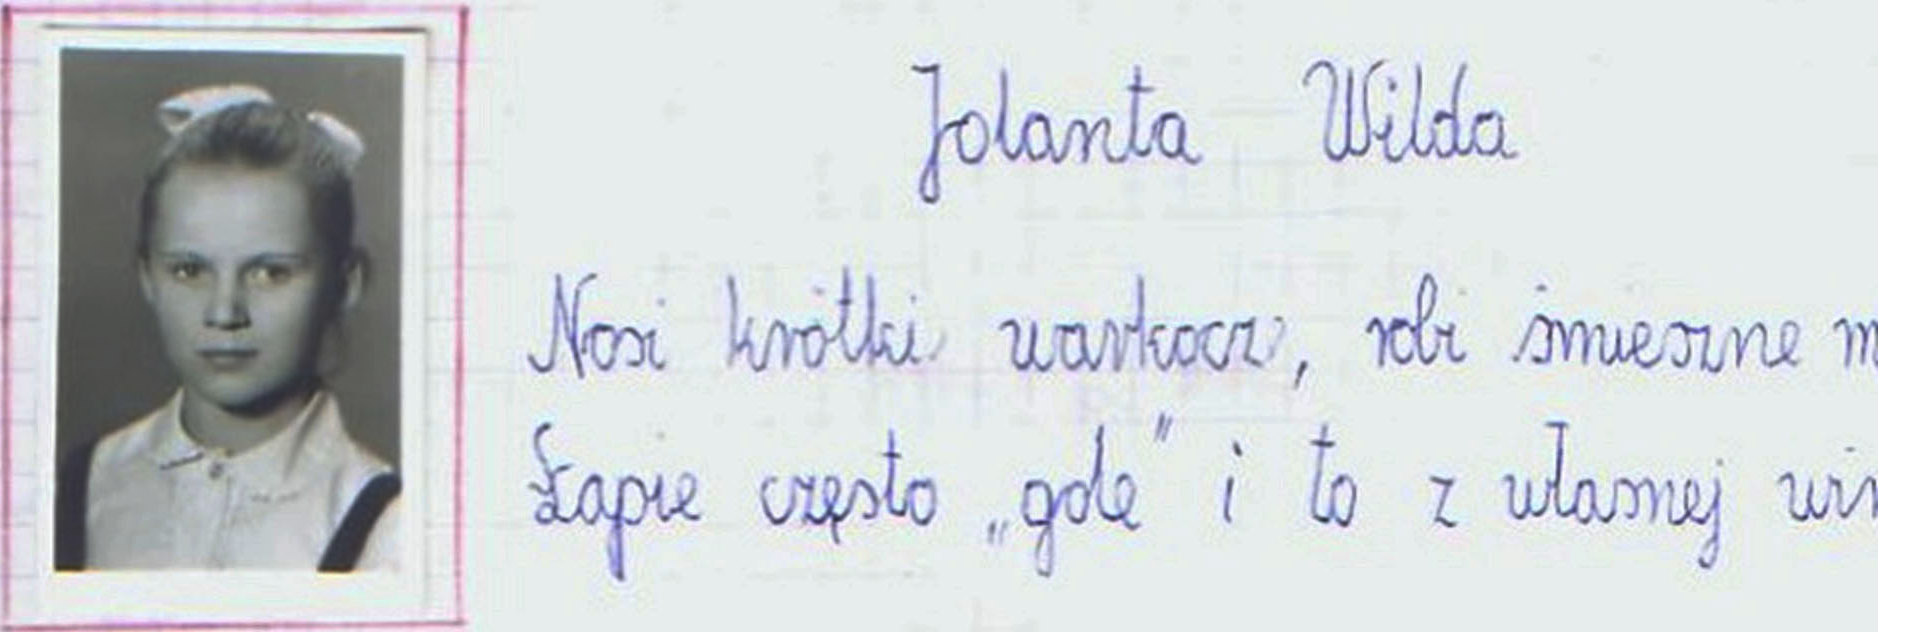 Jolanta Wilda
Nosi krótki warkocz, robi śmieszne m
Łapie często „gole” i to z własnej win